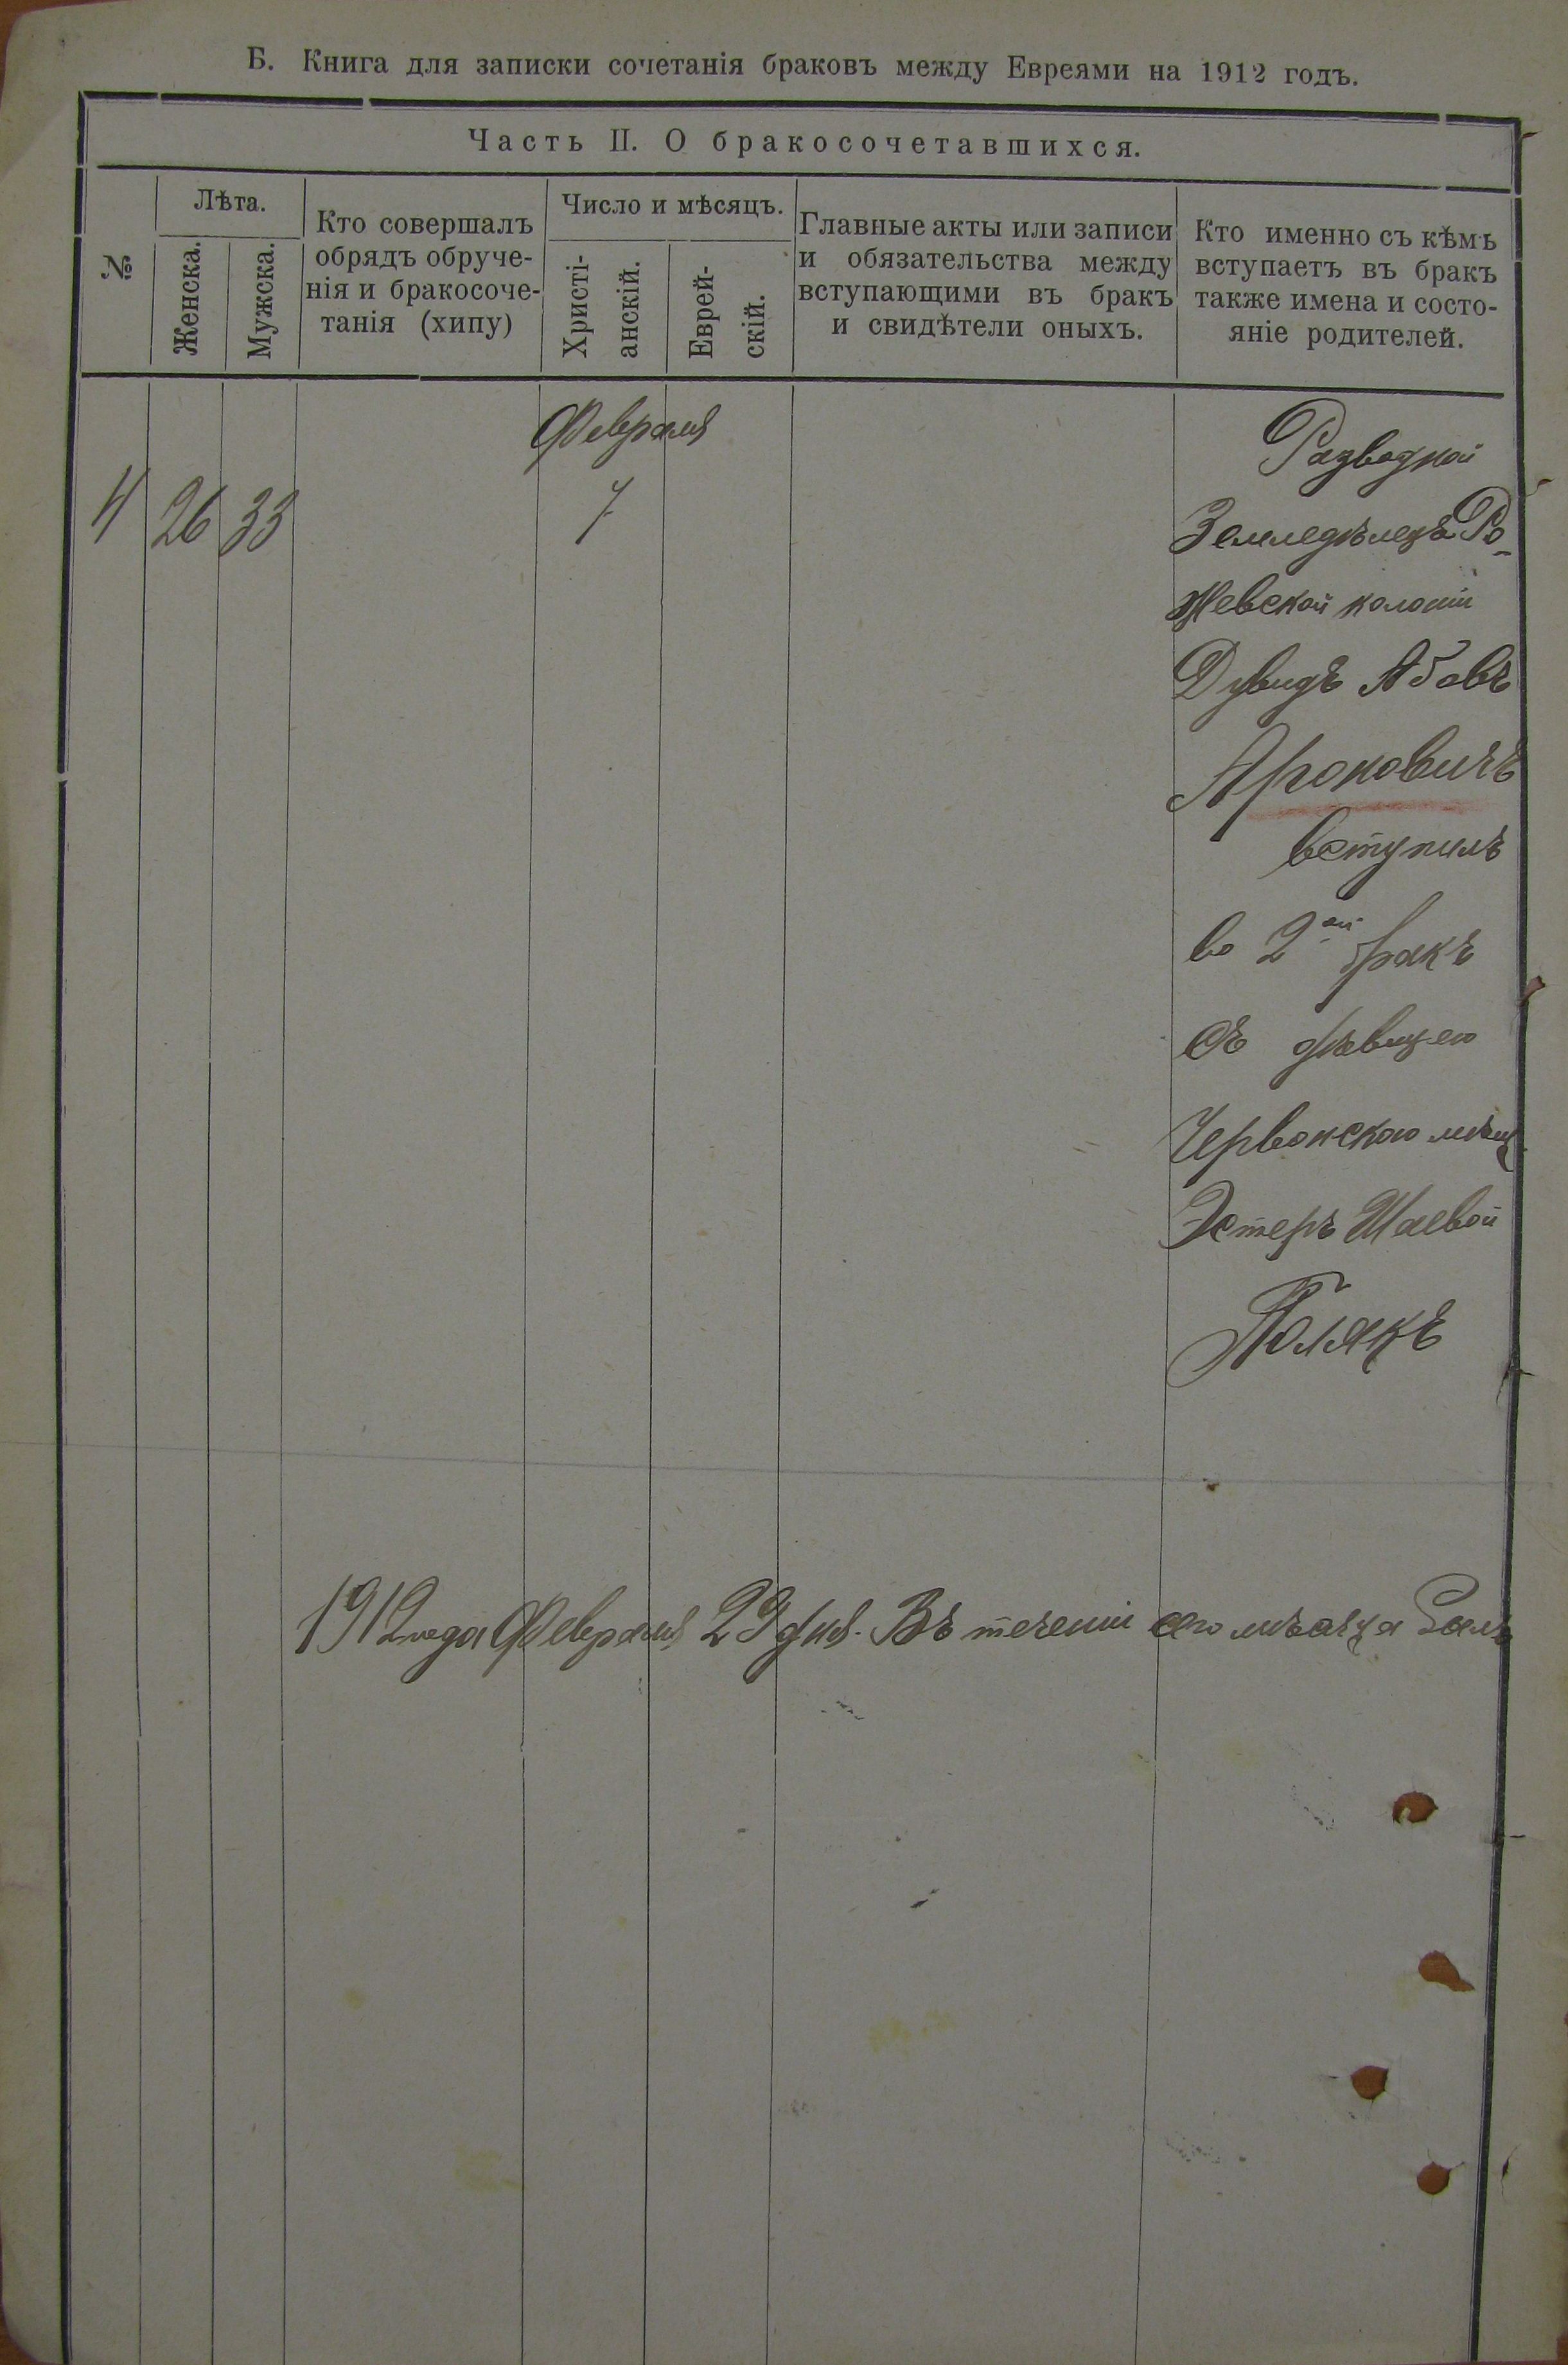 Б. Книга для записки сочетанія браковъ между Евреями на 1912 годъ.
Часть II. О бракосочетавшихся.
№
Лѣта.
Женска.
Мужска.
Кто совершалъ
обрядъ обруче-
нія и бракосоче-
танія (хипу)
Число и мѣсяцъ.
Христі-
анскій.
Еврей-
скій.
Главные акты или записи
и обязательства между
вступающими въ бракъ
и свидѣтели оныхъ.
Кто именно съ кѣмъ
вступаетъ въ бракъ
также имена и состо-
яніе родителей.
Февраля
4 26 33 7
Разводной
Земледѣлецъ Ро-
жевской колоніи
Дувидъ Абовъ
Ароновичъ
вступилъ
во 2ой бракъ
съ дѣвицею
Червонскою мѣщ
Эстеръ Шаевой
Полякъ
1912 года Февраля 29 дня. Въ теченіи сего мѣсяца